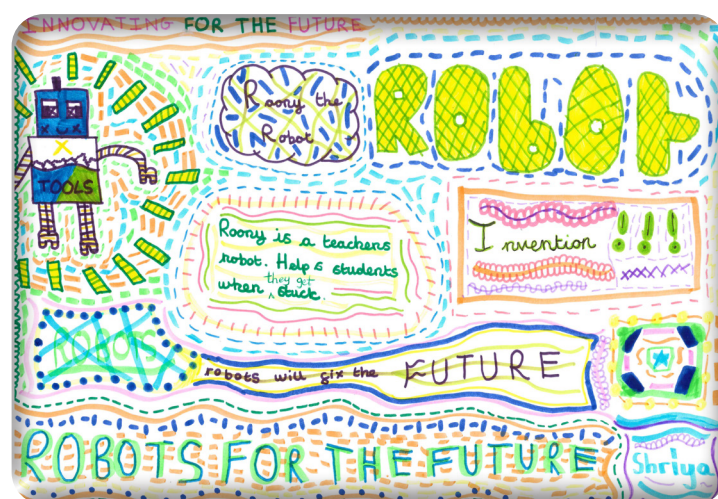 INNOVATING FOR THE FUTURE
Roony the
Robot
ROBOT
TOOLS
Roony is a teachers
robot. Helps students
they get
when ^ stuck.
Invention
!!!
ROBOTS
robots will fix the FUTURE
ROBOTS FOR THE FUTURE
Shriya